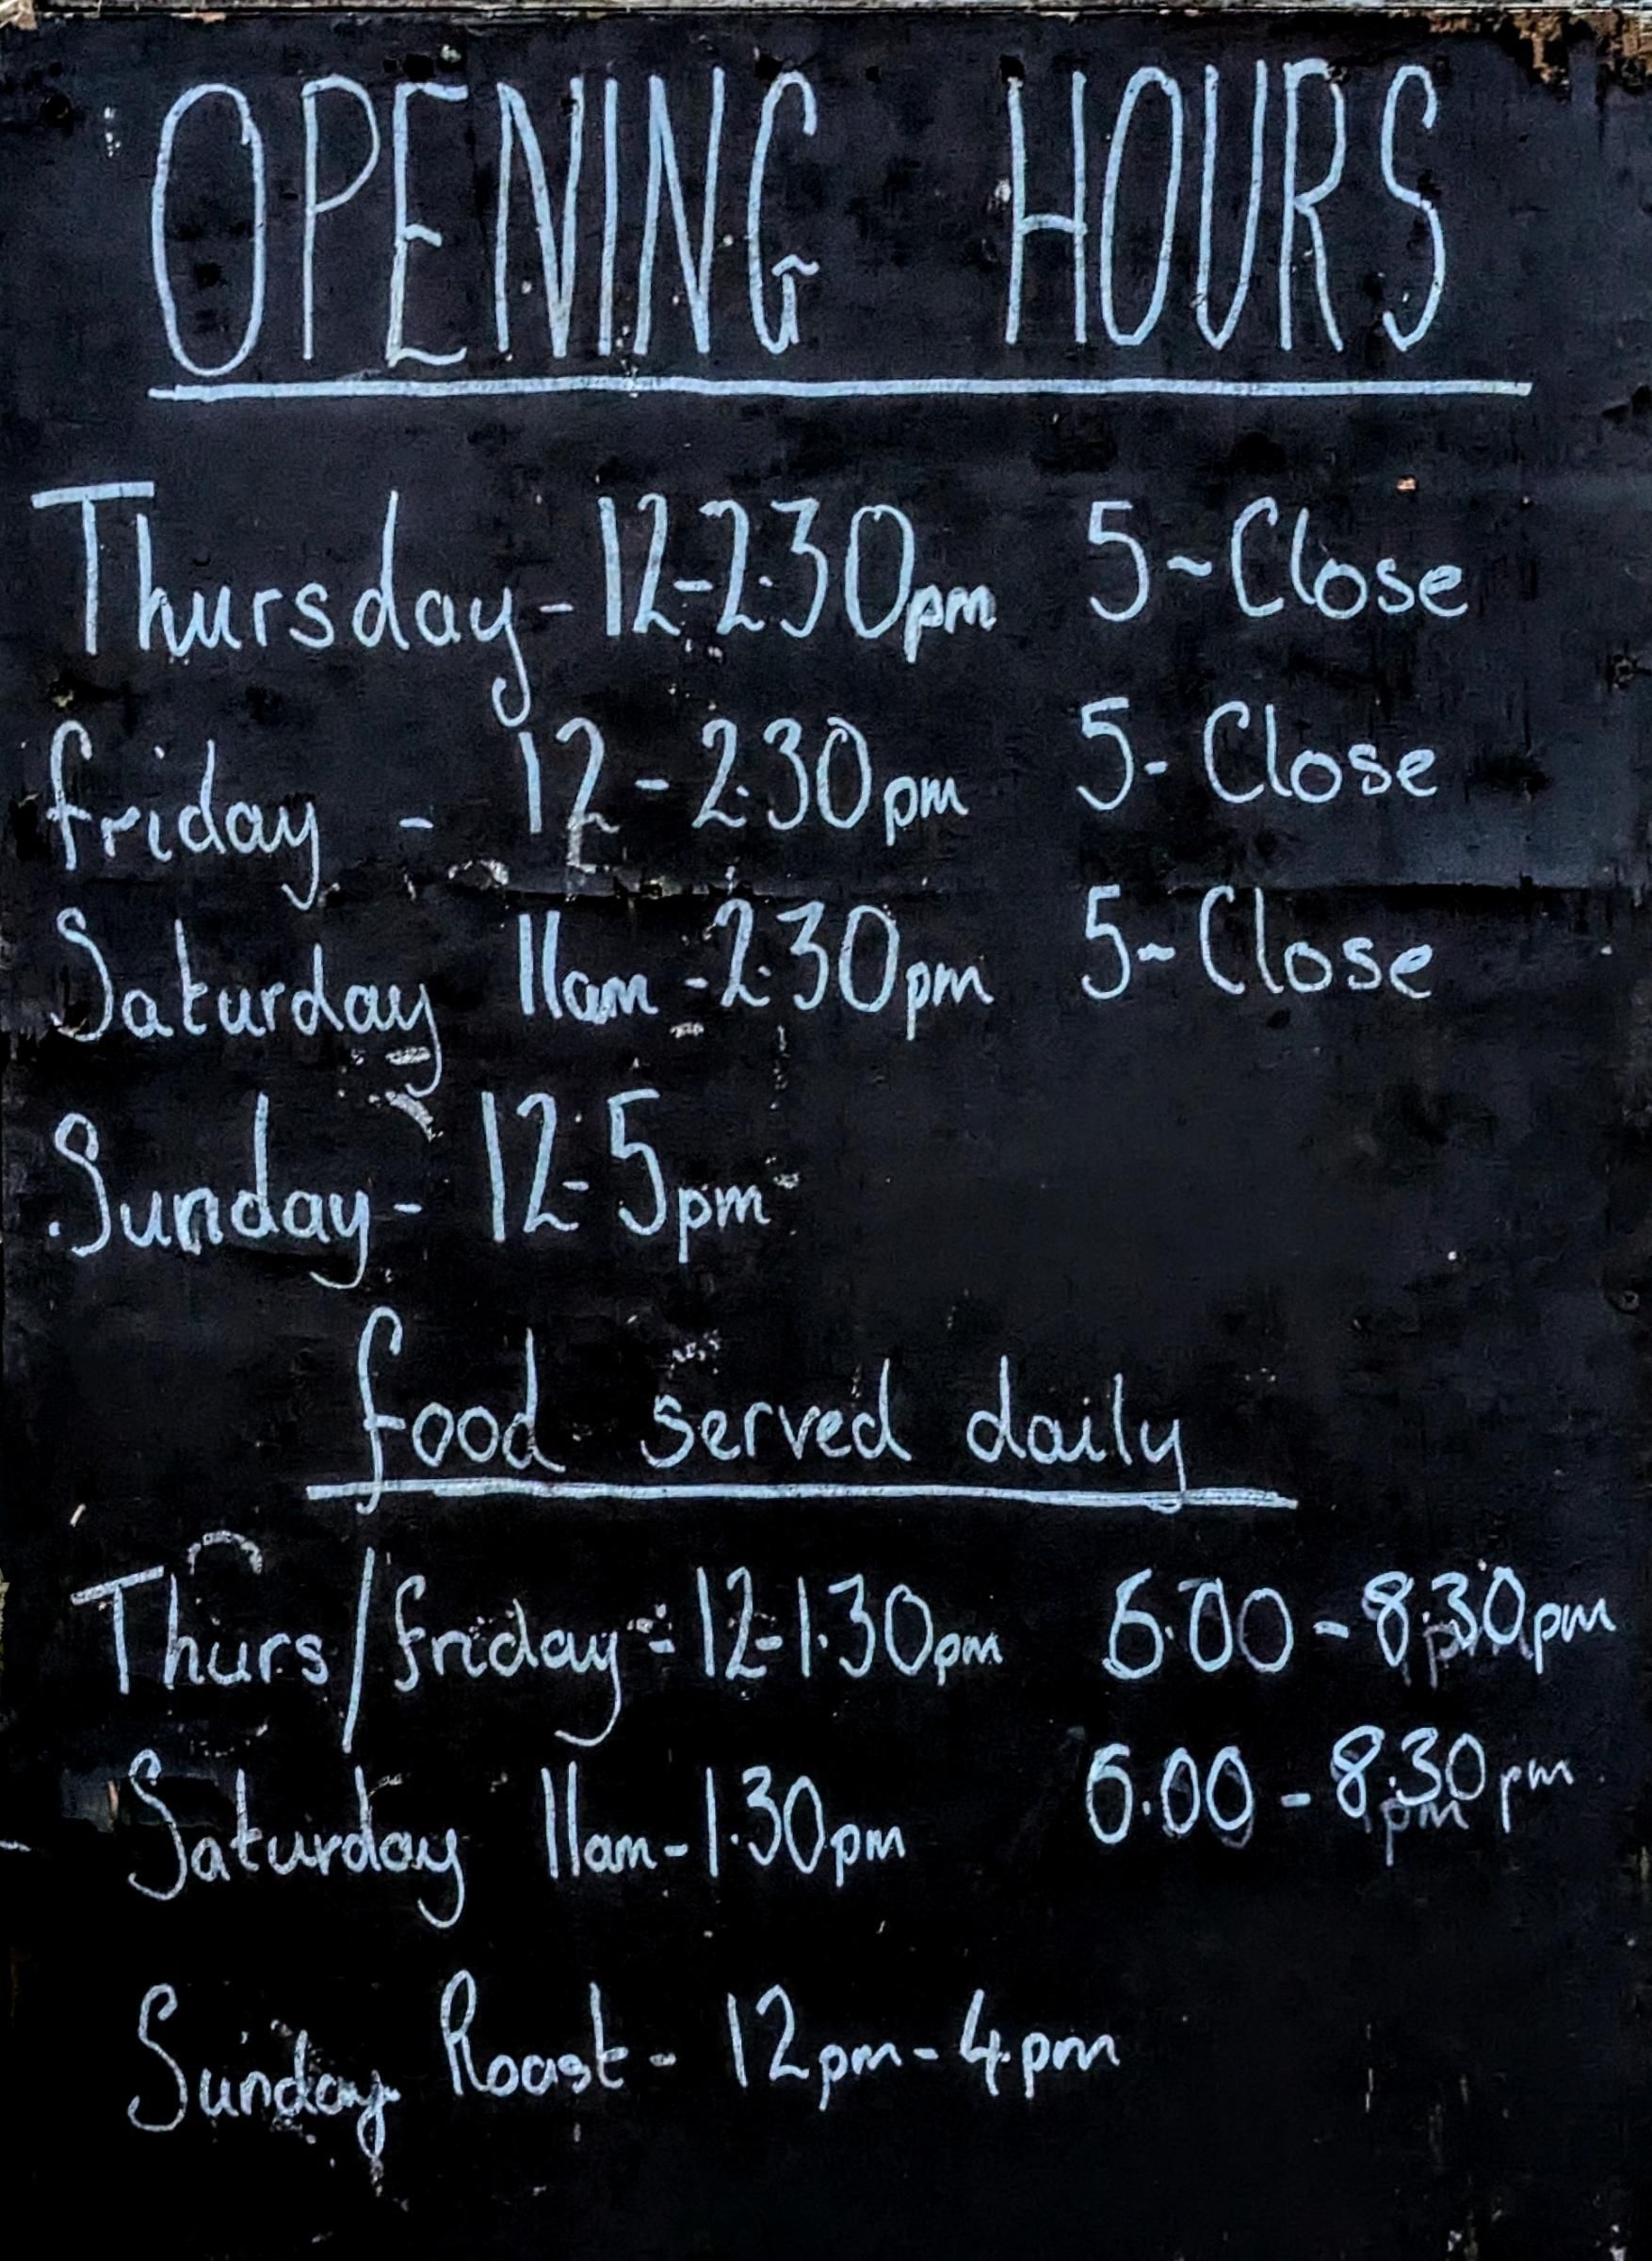 OPENING HOURS
Thursday - 12-2.30pm 5-Close
friday - 12-2.30pm 5-Close
Saturday 11am-2.30pm 5-Close
Sunday- 12-5pm
food served daily
Thurs/friday-12-1.30pm 6.00-8.30pm
Saturday 11am-1.30pm 6.00-8.30pm
Sunday Roast- 12pm-4pm